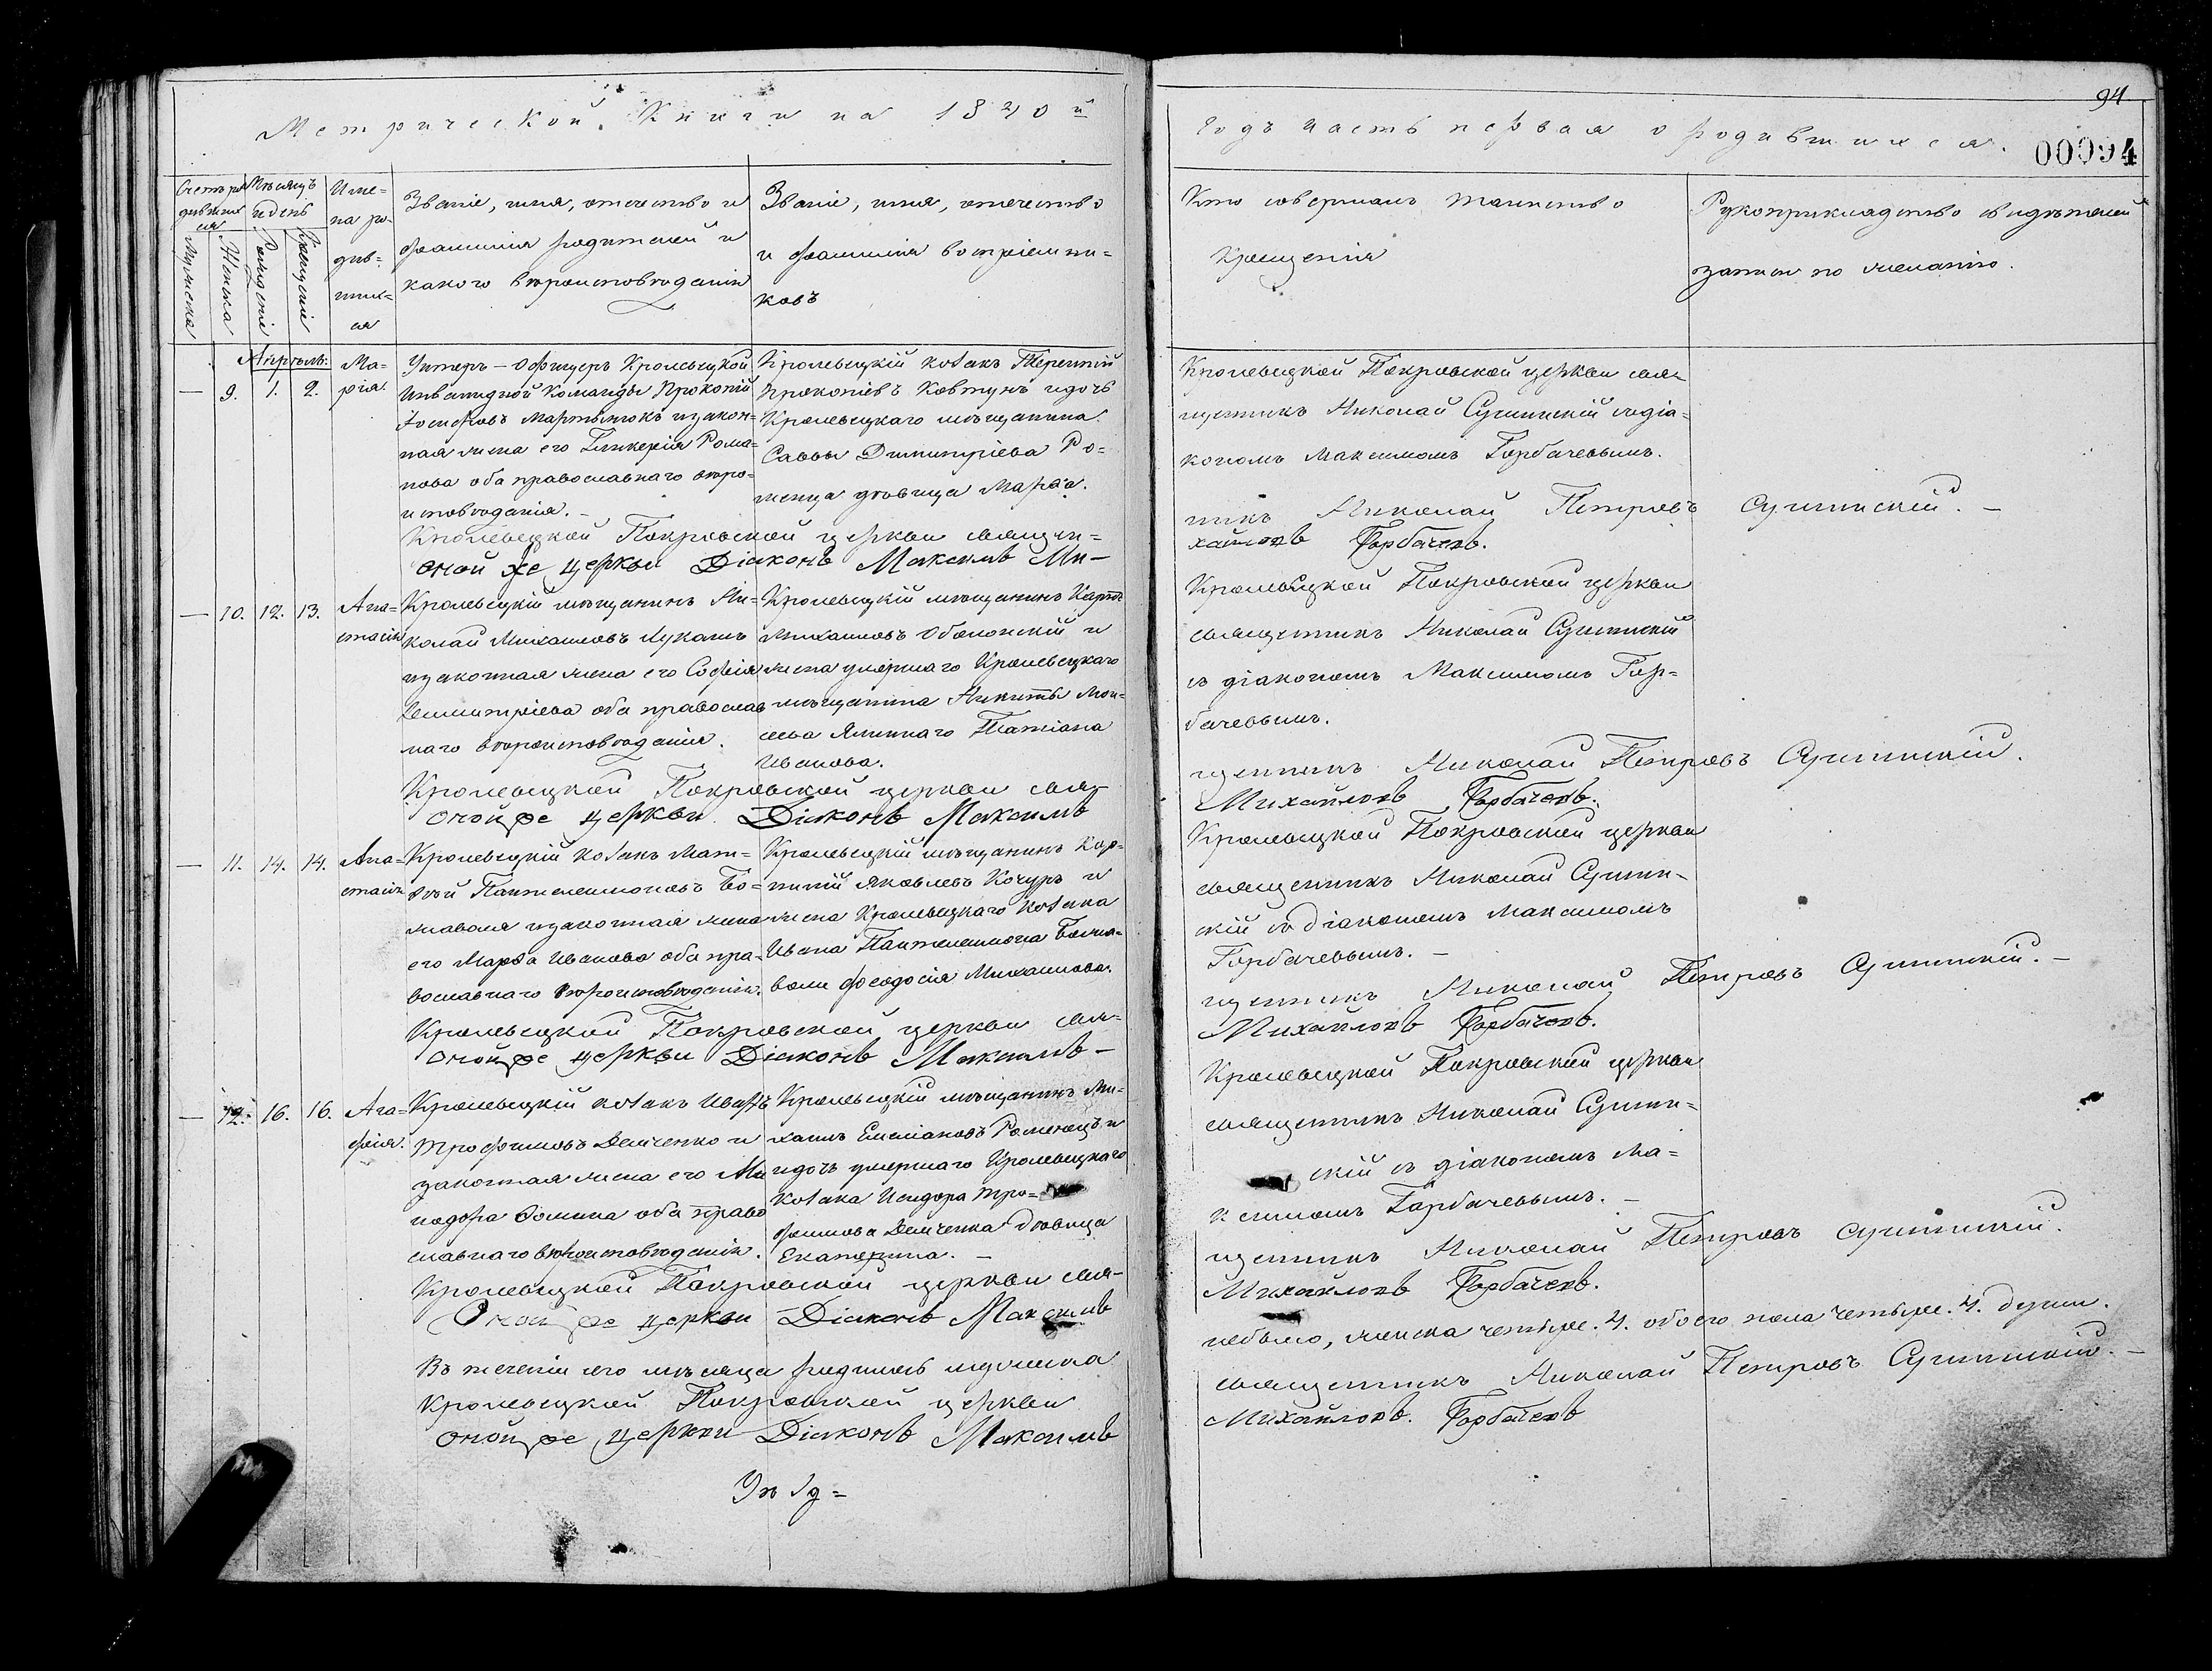 94
00094
Метрической Книги на 1840й
годъ часть первая о родившихся.
Счетъ ро
дивших
ся
Мужеска
Женска
Мѣсяцъ
и день
Рожденіе
Крещеніе
Име=
на ро=
див=
ших=
ся
Званіе, имя, отчество и
фамилія родителей и
какого вѣроисповѣданія
Званіе, имя, отчество
и фамилія воспріемни=
ковъ
Кто совершалъ таинство
Крещенія
Рукоприкладство свидѣтелей
записи по желанію.
Апрѣль:
— 9. 1. 2.
Ма=
рія.
Унтеръ-Офицеръ Кролевецкой
Инвалидной Команды Прокопій
Іосифовъ Мартынюкъ и закон=
ная жена его Гликерія Рома=
нова оба православнаго вѣро=
исповѣданія. —
Кролевецкій козакъ Терентій
Прокопіевъ Ковтунъ и дочь
Кролевецкаго мѣщанина
Саввы Димитріева Ро=
менца дѣвица Марѳа.
Кролевецкой Покровской церкви свя=
щенникъ Николай Сушинскій съ діа=
кономъ Максимомъ Горбачевымъ.
Кролевецкой Покровской церкви священ=
никъ Николай Петровъ Сушинскій. —
Оной же церкви Діаконъ Максимъ Ми-
хайловъ Горбачевъ.
— 10. 12. 13.
Ана=
стасія
Кролевецкій мѣщанинъ Ни=
колай Михайловъ Лукашъ
и законная жена его Софія
Димитріева оба православ
наго вѣроисповѣданія.
Кролевецкій мѣщанинъ Карпъ
Михайловъ Оболонскій и
жена умершаго Кролевецкаго
мѣщанина Никиты Мои=
сеева Татіана
Иванова.
Кролевецкой Покровской церкви
священникъ Николай Сушинскій
съ діакономъ Максимомъ Гор=
бачевымъ.
Кролевецкой Покровской церкви свя-
щенникъ Николай Петровъ Сушинскій.
Оной же церкви Діаконъ Максимъ
Михайловъ Горбачевъ.
— 11. 14. 14.
Ана=
стасія
Кролевецкій козакъ Мат=
ѳѣй Пантелеимоновъ Бо=
жаволя и законная жена
его Марѳа Иванова оба пра=
вославнаго вѣроисповѣданія.
Кролевецкій мѣщанинъ Кор=
нилій Яковлевъ Кочуръ и
жена Кролевецкаго козака
Ивана Пантелеимона Божа=
воли Феодосія Михайлова.
Кролевецкой Покровской церкви
священникъ Николай Сушин=
скій съ діакономъ Максимомъ
Горбачевымъ. —
Кролевецкой Покровской церкви свя-
щенникъ Николай Петровъ Сушинскій. —
Оной же церкви Діаконъ Максимъ —
Михайловъ Горбачевъ.
— 12. 16. 16.
Ага=
фія.
Кролевецкій козакъ Иванъ
Трофимовъ Демченко и
законная жена его Ми
нодора Ѳомина оба право
славнаго вѣроисповѣданія.
Кролевецкій мѣщанинъ Ми=
хаилъ Емеліановъ Роменецъ и
и дочь умершаго Кролевецкаго
козака Исидора Тро=
фимова Демченка дѣвица
Екатерина. —
Кролевецкой Покровской церкви
священникъ Николай Сушин=
скій съ діакономъ Ма=
ксимомъ Горбачевымъ. —
Кролевецкой Покровской церкви свя-
щенникъ Николай Петровъ Сушинскій.
Оной же церкви Діаконъ Максимъ
Михайловъ Горбачевъ.
Въ теченіи сего мѣсяца родилось мужеска
небыло, женска четыре. 4. обоего пола четыре. 4. души.
Кролевецкой Покровской церкви
священникъ Николай Петровъ Сушинскій. —
Оной же церкви Діаконъ Максимъ
Михайловъ. Горбачевъ